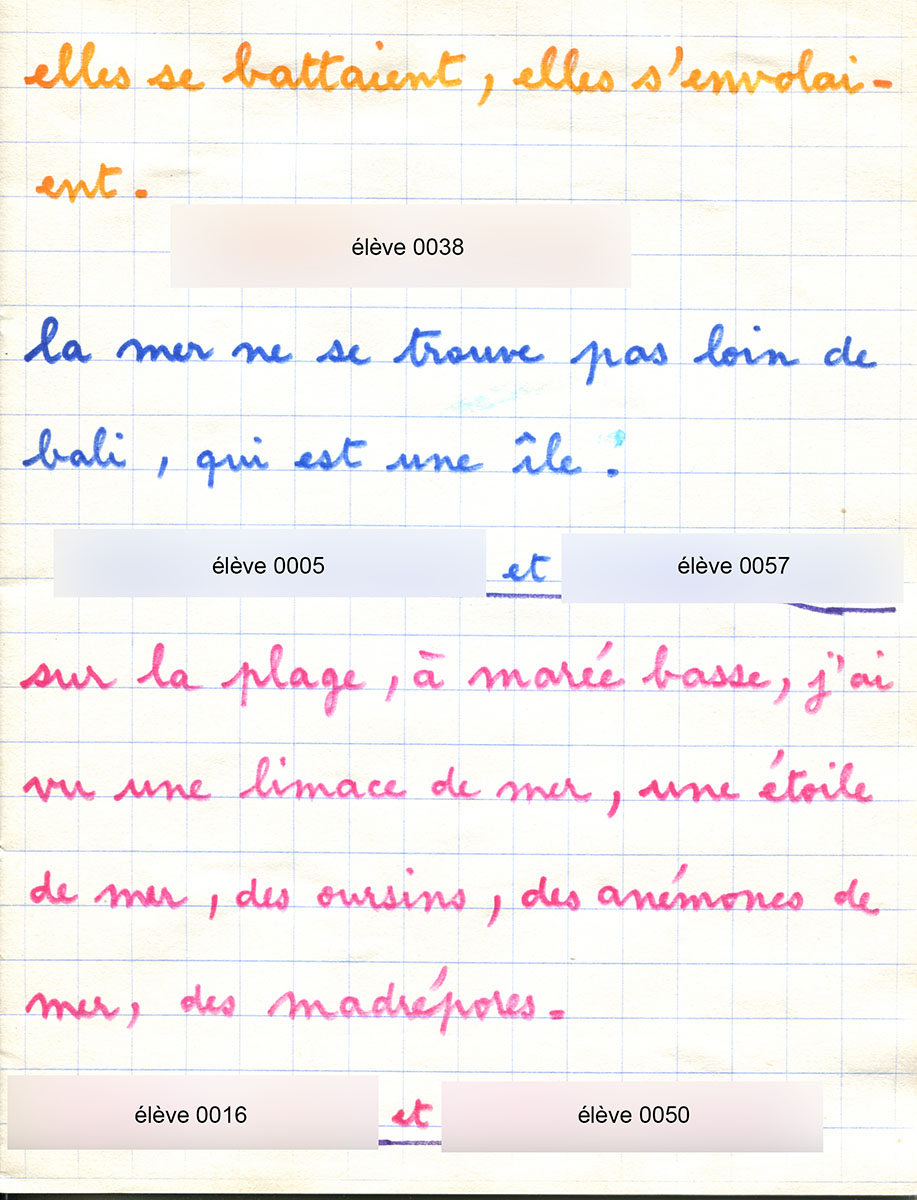 elles se battaient, elles s'envolai-
ent.
élève 0038
la mer ne se trouve pas loin de
bali, qui est une île.
élève 0005 et élève 0057
sur la plage, à marée basse, j'ai
vu une limace de mer, une étoile
de mer, des oursins, des anémones de
mer, des madrépores.
élève 0016 et élève 0050